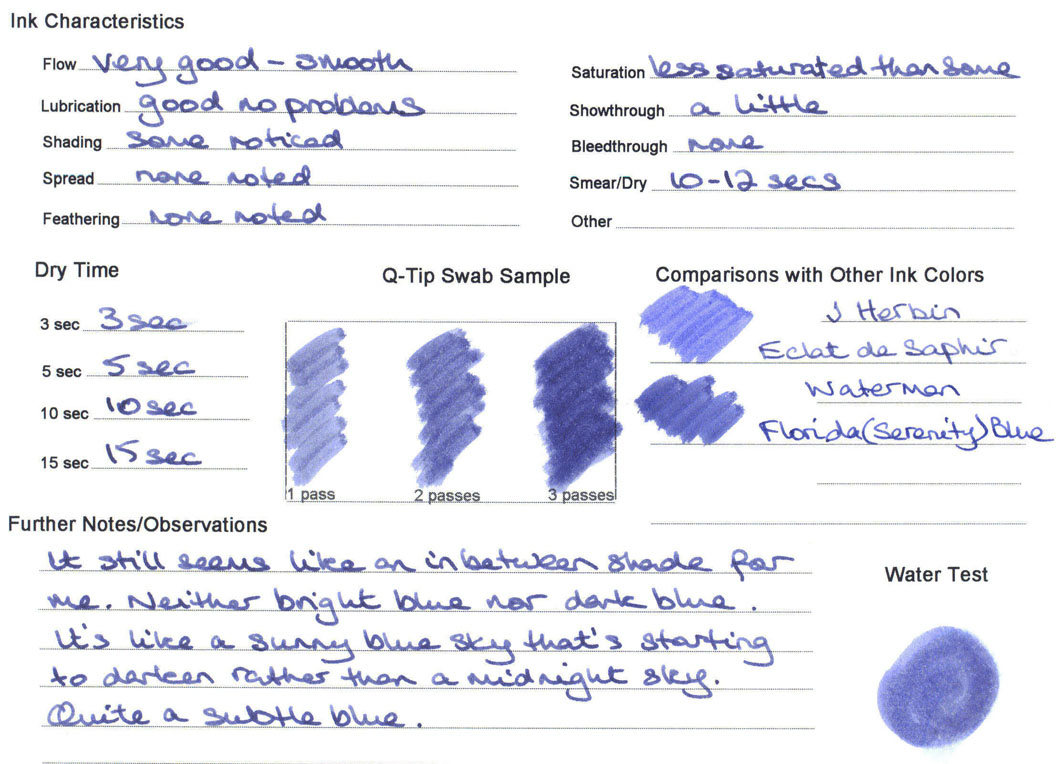 Ink Characteristics
Flow very good - smooth
Lubrication good no problems
Shading some noticed
Spread none noted
Feathering none noted
Saturation less saturated than some
Showthrough a little
Bleedthrough none
Smear/Dry 10-12 secs
Other
Dry Time
3 sec 3 sec
5 sec 5 sec
10 sec 10 sec
15 sec 15 sec
Q-Tip Swab Sample
1 pass 2 passes 3 passes
Comparisons with Other Ink Colors
J Herbin
Eclat de Saphir
Waterman
Florida (Serenity) Blue
Further Notes/Observations
It still seems like an inbetween shade for
me. Neither bright blue nor dark blue.
It's like a sunny blue sky that's starting
to darken rather than a midnight sky.
Quite a subtle blue.
Water Test